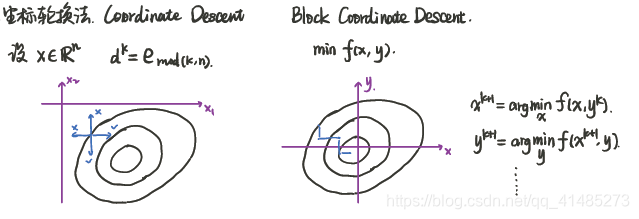 坐标轮换法. Coordinate Descent
设 x∈ℝⁿ dᵏ = e_mod(k,n).
x₂
x₁
x
x
✓
✓
Block Coordinate Descent.
min f(x, y).
y
x
xᵏ⁺¹ = argmin_x f(x, yᵏ).
yᵏ⁺¹ = argmin_y f(xᵏ⁺¹, y).
⋮
https://blog.csdn.net/qq_41485273